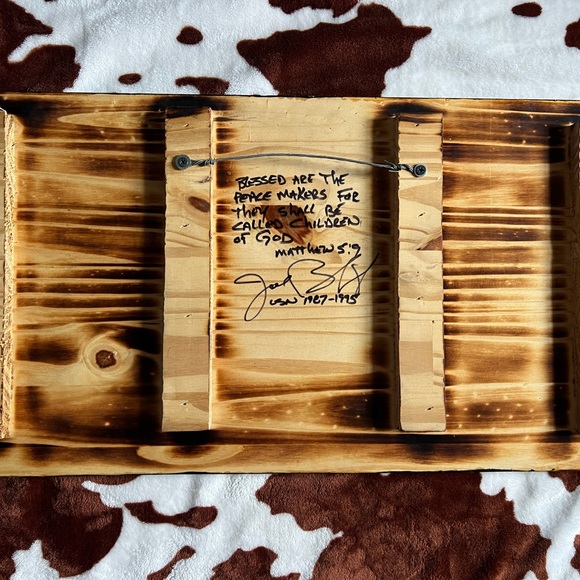 BLESSED ARE THE
PEACE MAKERS FOR
THEY SHALL BE
CALLED CHILDREN
OF GOD
MATTHEW 5:9
USN 1987-1995